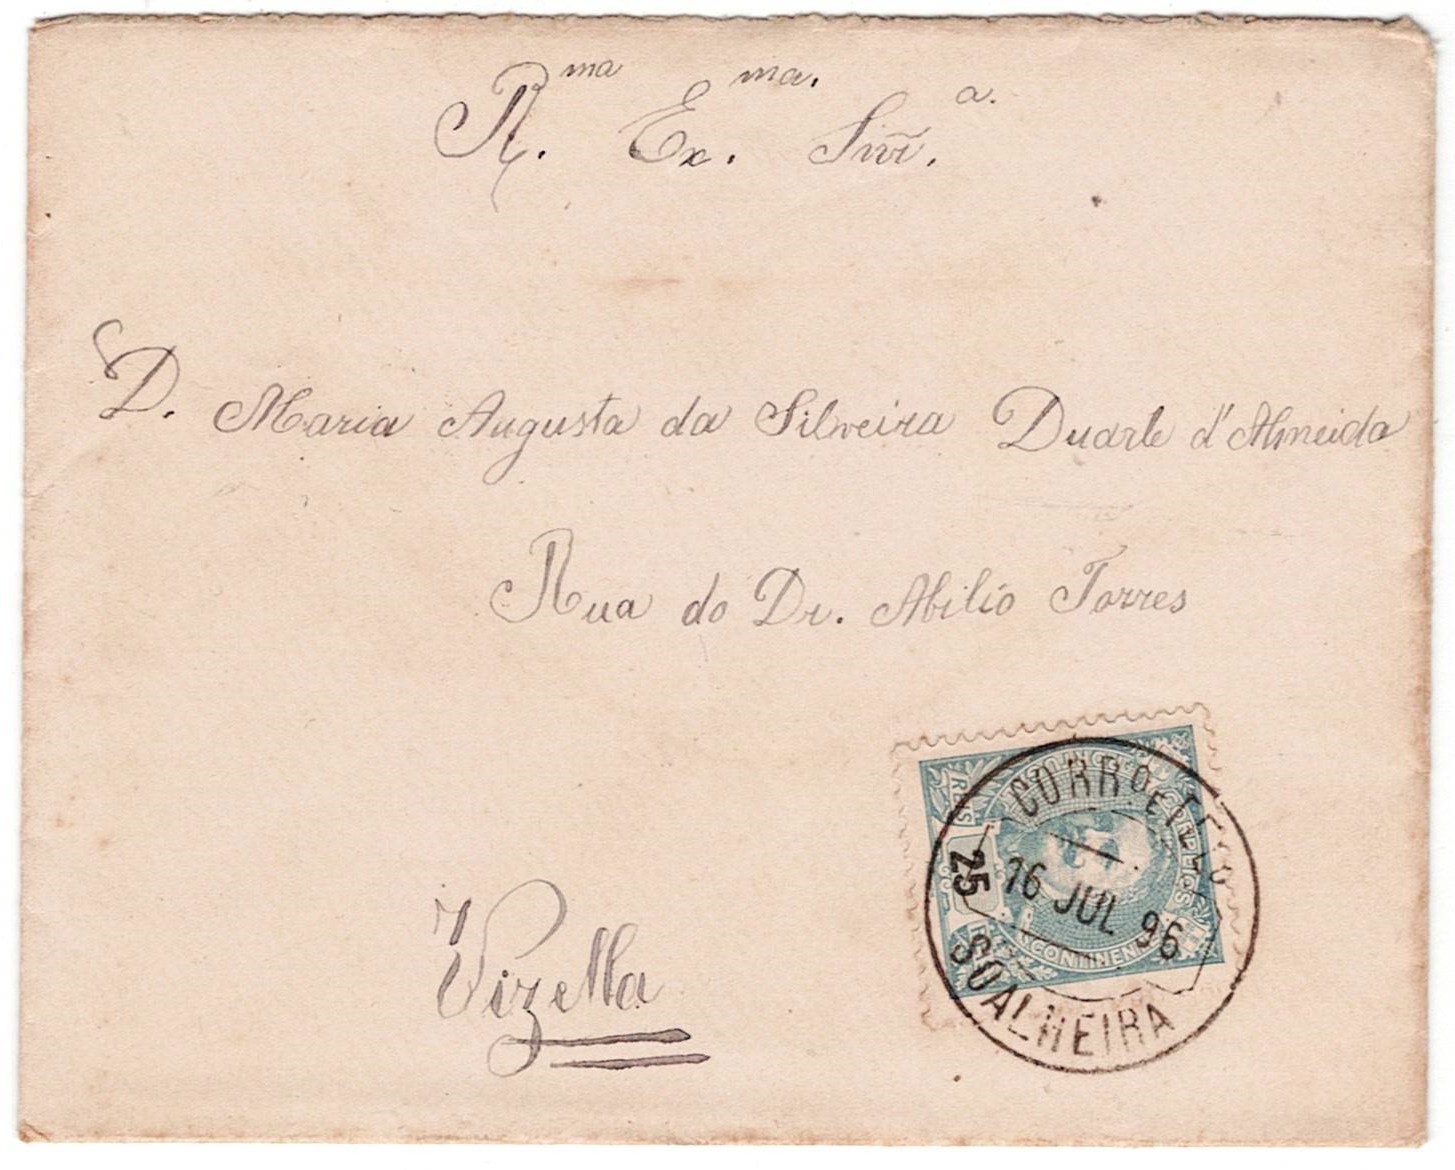 R.ma Ex.ma. Snr̃.a.
D. Maria Augusta da Silveira Duarte d'Almeida
Rua do Dr. Abilio Torres
Vizella
CORRO E TELO
16 JUL 96
SOALHEIRA
REIS
25
CONTINENTE